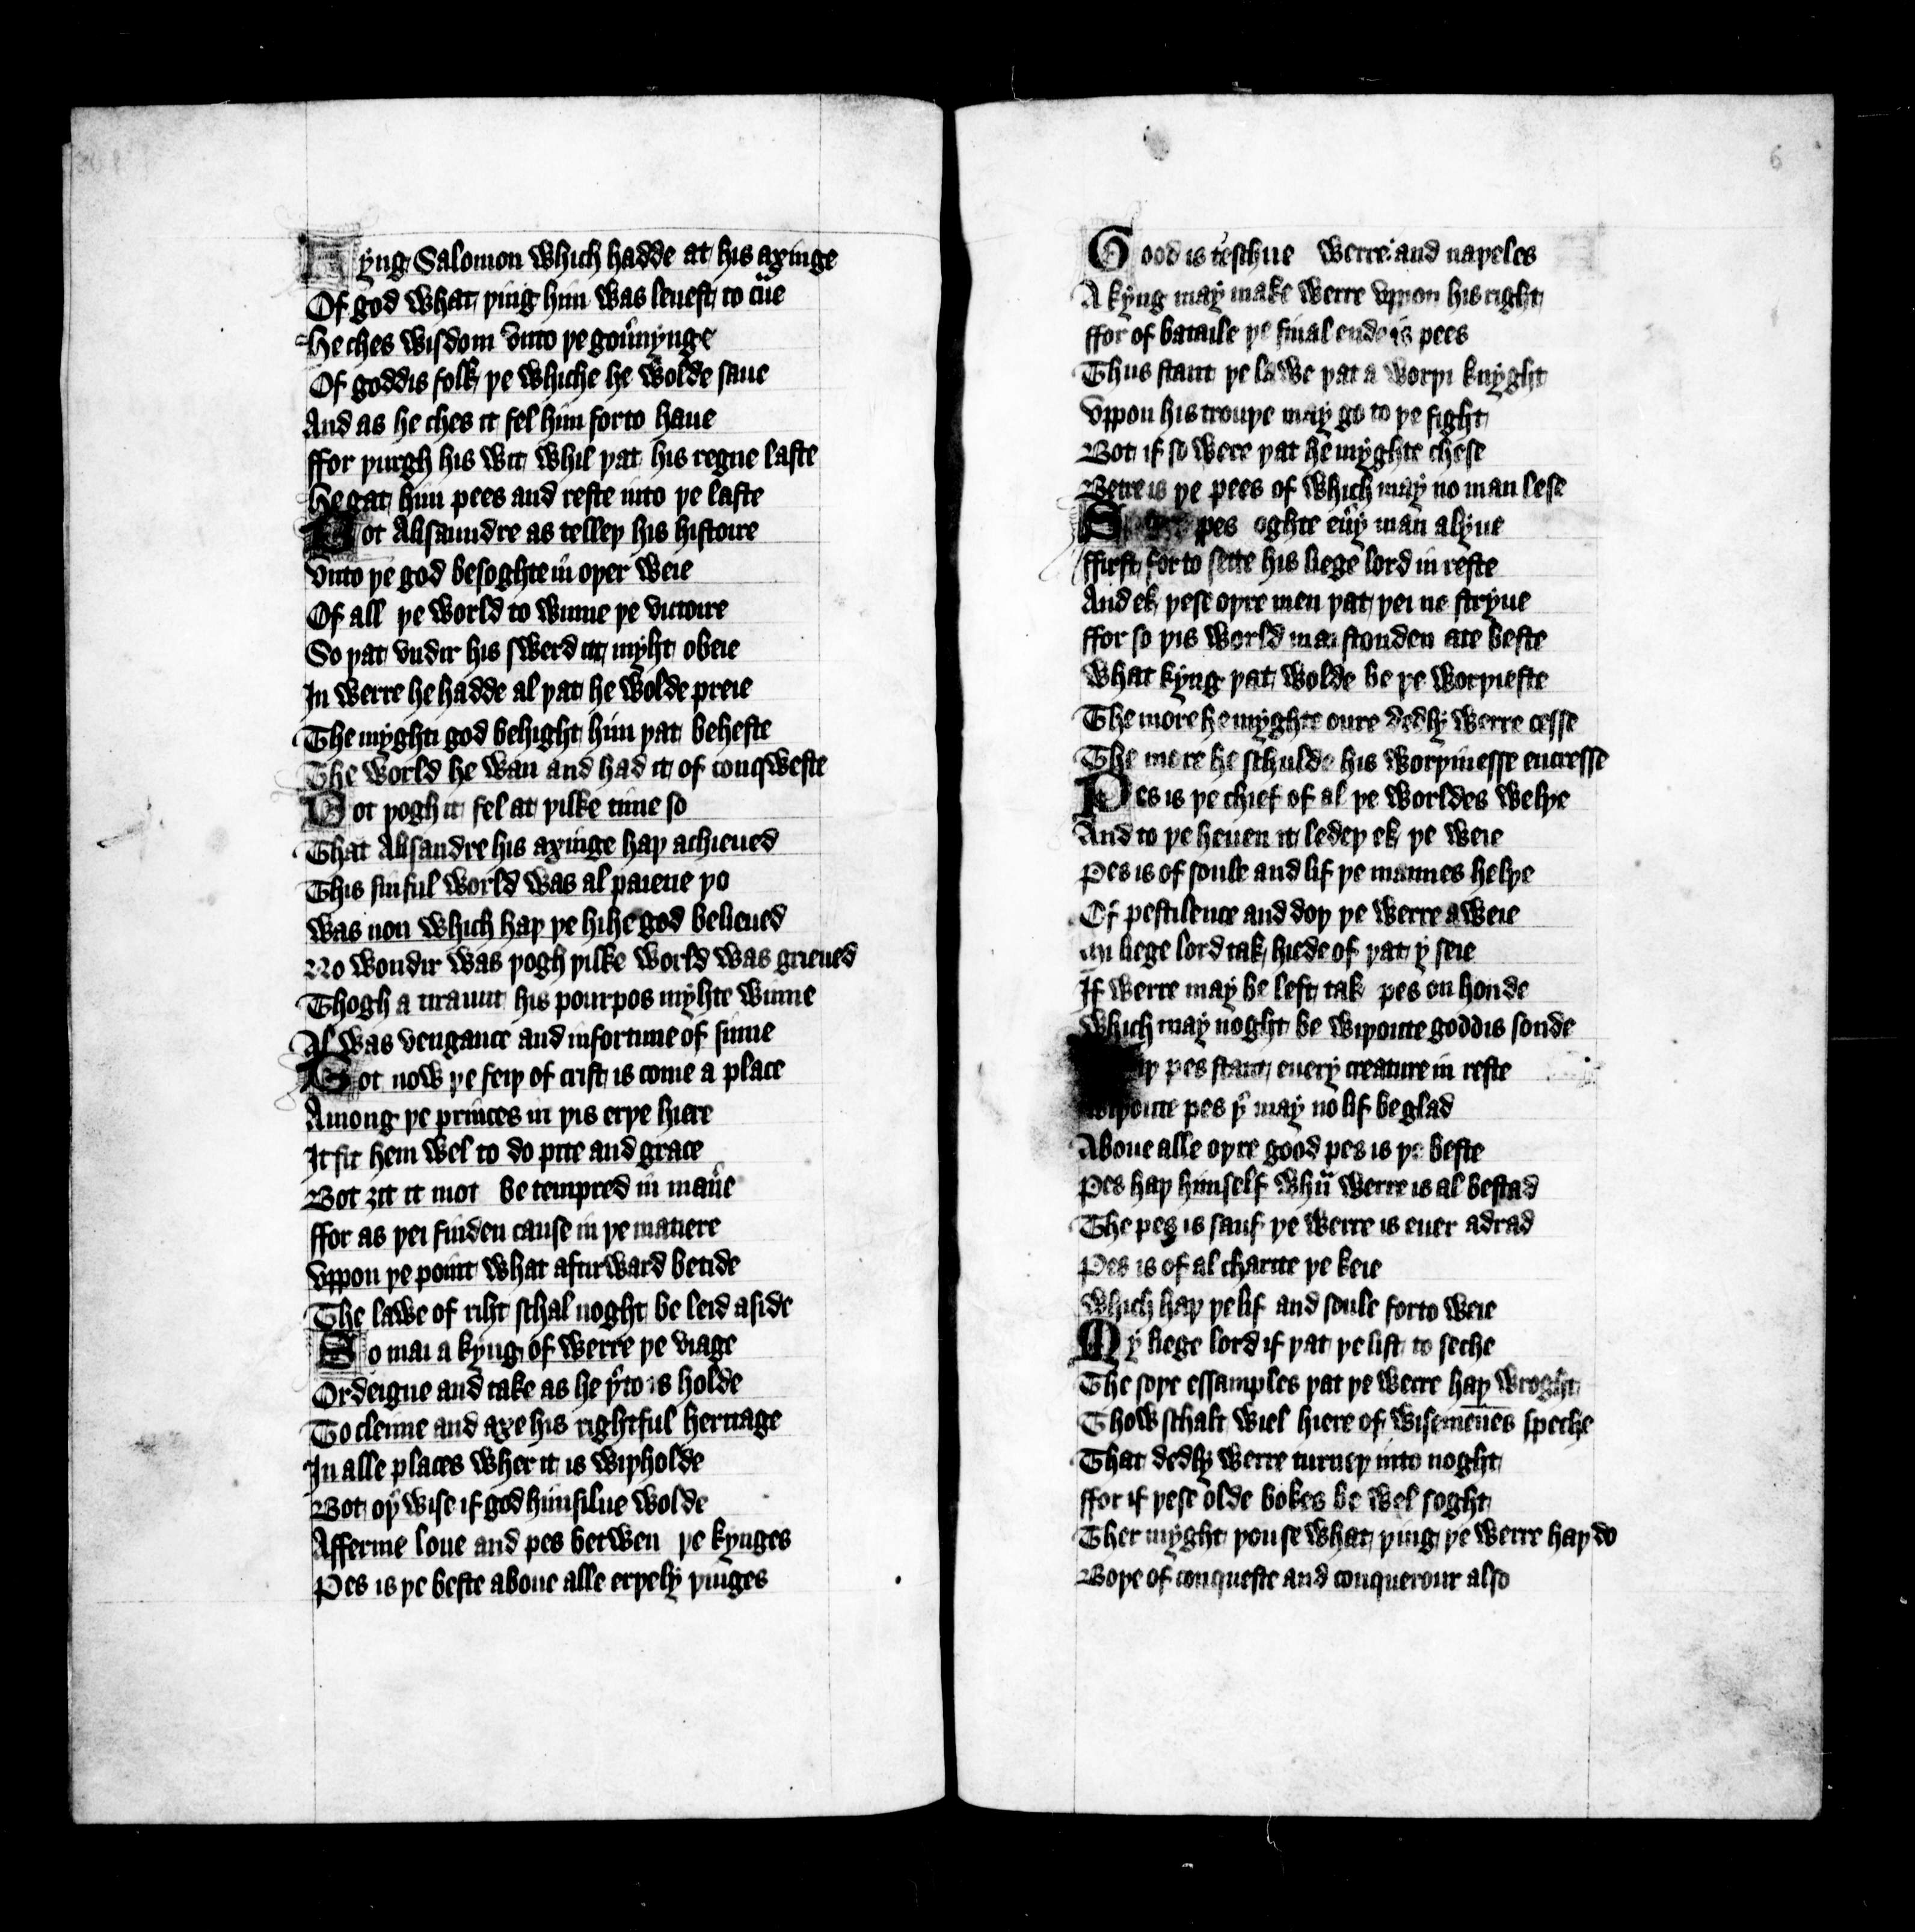 Kyng Salomon which hadde at his axinge
Of god what þing him was leuest to cͣue
He ches wisdom vnto þe gou̾nynge
Of goddis folk þe whiche he wolde saue
And as he ches it fel him forto haue
ffor þurgh his wit whil þat his regne laste
He gat him pees and reste into þe laste
Bot Alisaundre as telleþ his histoire
Vnto þe god besoghte in oþer weie
Of all þe world to winne þe victoire
So þat vndir his swerd itt myht obeie
In werre he hadde al þat he wolde preie
The myghti god behight him þat beheste
The world he wan and had it of conqweste
Bot þogh it fel at þilke time so
That Alisandre his axinge haþ achieued
This sinful world was al paiene þo
Was non which haþ þe hihe god belieued
No wondir was þogh þilke world was grieued
Thogh a tiraunt his pourpos myhte winne
Al was vengance and infortune of sinne
Bot now þe feiþ of crist is come a place
Among þe princes in þis erþe hiere
It sit hem wel to do pite and grace
Bot ȝit it mot be tempred in man̾e
ffor as þei finden cause in þe matiere
Vppon þe point what aftirward betide
The lawe of riht schal noght be leid aside
So mai a kyng of werre þe viage
Ordeigne and take as he þ̾to is holde
To cleime and axe his rightful heritage
In alle places wher it is wiþholde
Bot oþ̾ wise if god himsilue wolde
Afferme loue and pes betwen þe kynges
Pes is þe beste aboue alle erþely þinges
Good is teschue werre and naþeles
A kyng may make werre vppon his right
ffor of bataile þe final ende is pees
Thus stant þe lawe þat a worþi knyght
Vppon his trouþe may go to þe fight
Bot if so were þat he myghte chese
Betre is þe pees of which may no man lese
S pes oghte eu̾y man alyue
ffirst forto sette his liege lord in reste
And ek þese oþre men þat þei ne stryue
ffor so þis world mai stonden ate beste
What kyng þat wolde be þe worþieste
The more he myghte oure dedly werre cesse
The more he schulde his worþinesse encresse
Pes is þe chief of al þe worldes welþe
And to þe heuen it ledeþ ek þe weie
Pes is of soule and lif þe mannes helþe
Of pestilence and doþ þe werre aweie
Mi liege lord tak hiede of þat y seie
If werre may be left tak pes on honde
Which may noght be wiþoute goddis sonde
iþ pes stant euery creature in reste
Wiþoute pes þ̾ may no lif be glad
Aboue alle oþre good pes is þe beste
Pes haþ himself whan werre is al bestad
The pes is sauf þe werre is euer adrad
Pes is of al charite þe keie
Which haþ þe lif and soule forto weie
My liege lord if þat þe list to seche
The soþe essamples þat þe werre haþ wroght
Thow schalt wiel hiere of wisemenes speche
That dedly werre turneþ into noght
ffor if þese olde bokes be wel soght
Ther myght þou se what þing þe werre haþ do
Boþe of conqueste and conquerour also
6